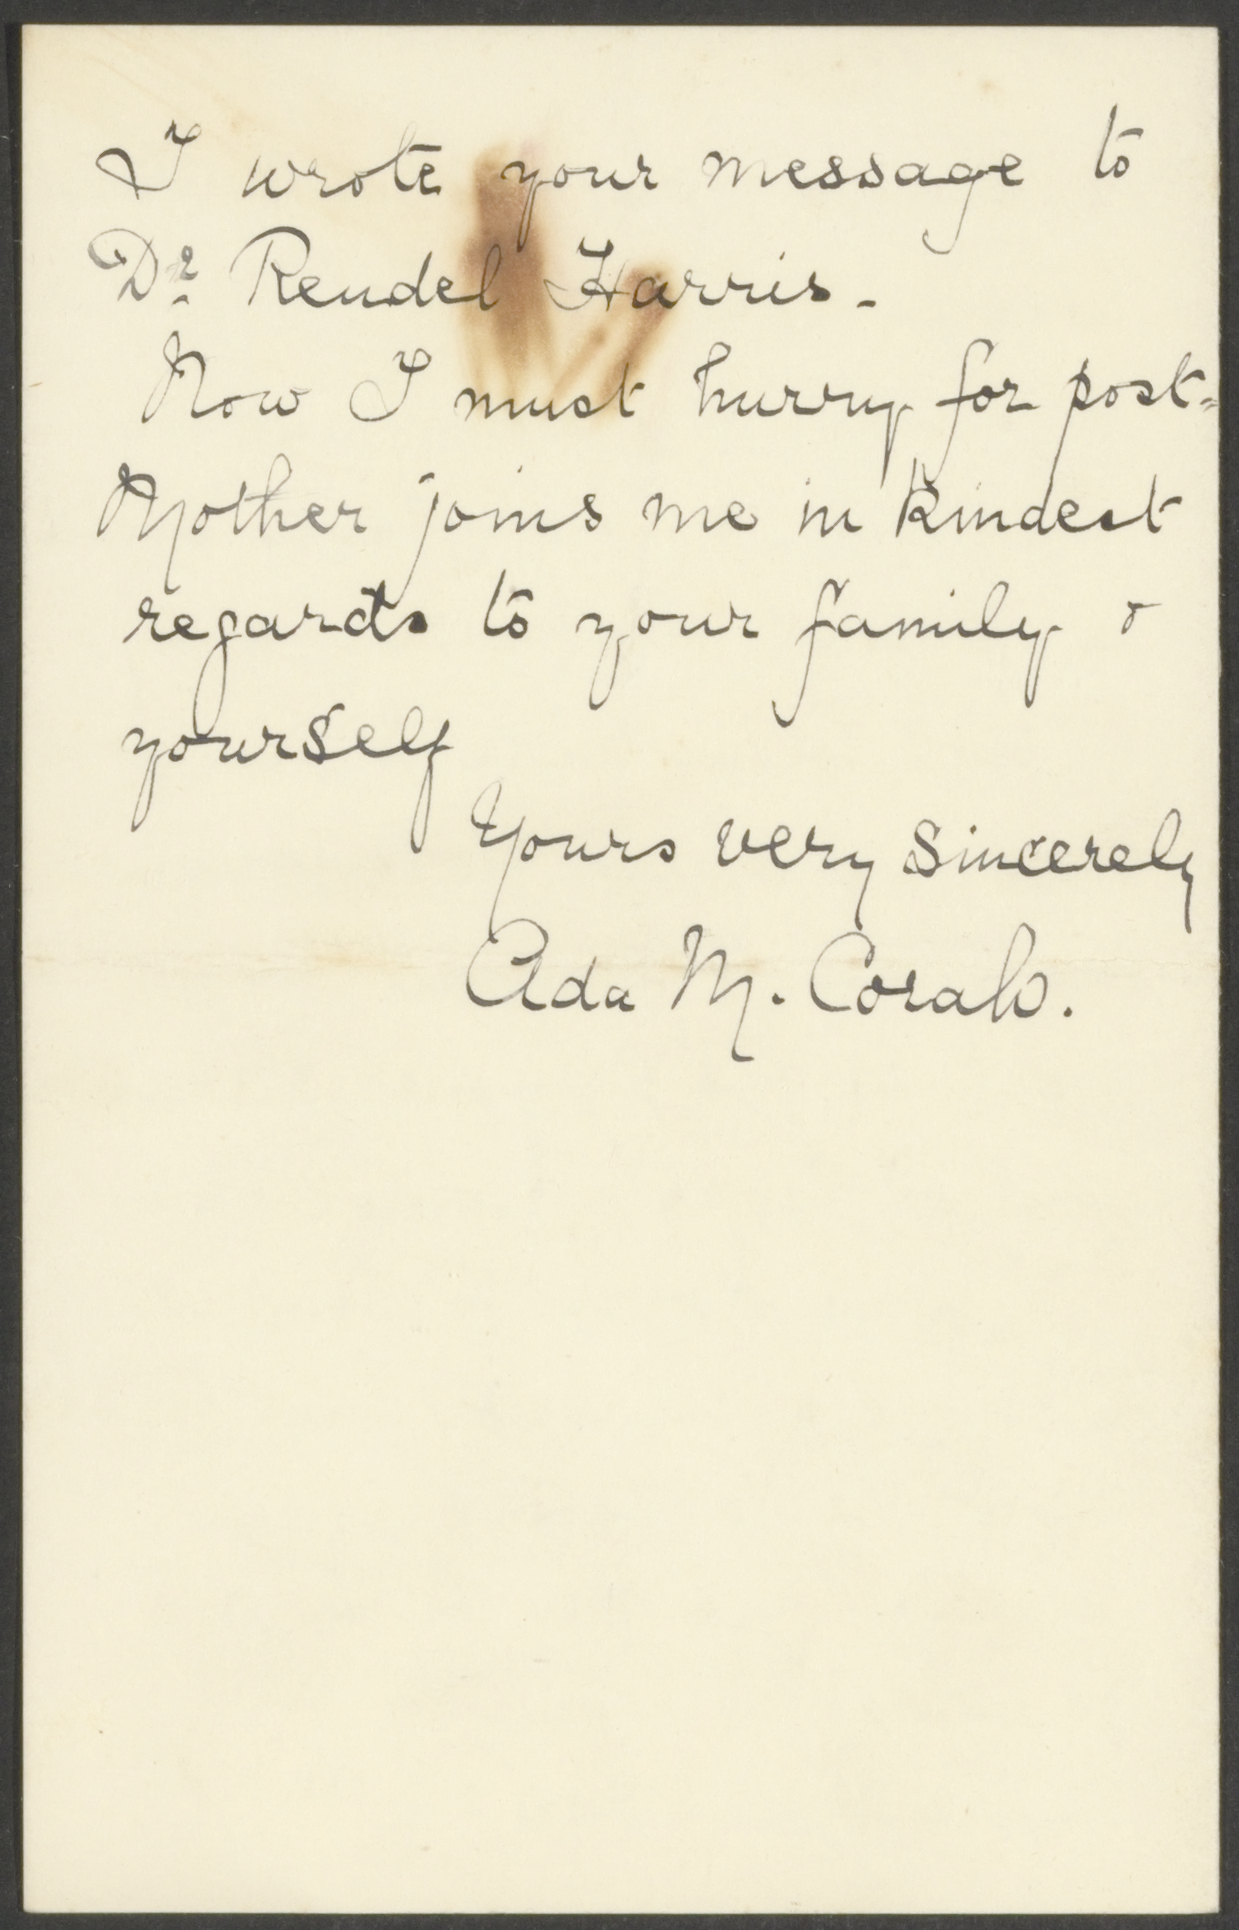 I wrote your message to
Dr. Rendel Harris.
Now I must hurry for post-
Mother joins me in kindest
regards to your family &
yourself
Yours very sincerely
Ada M. Corah.